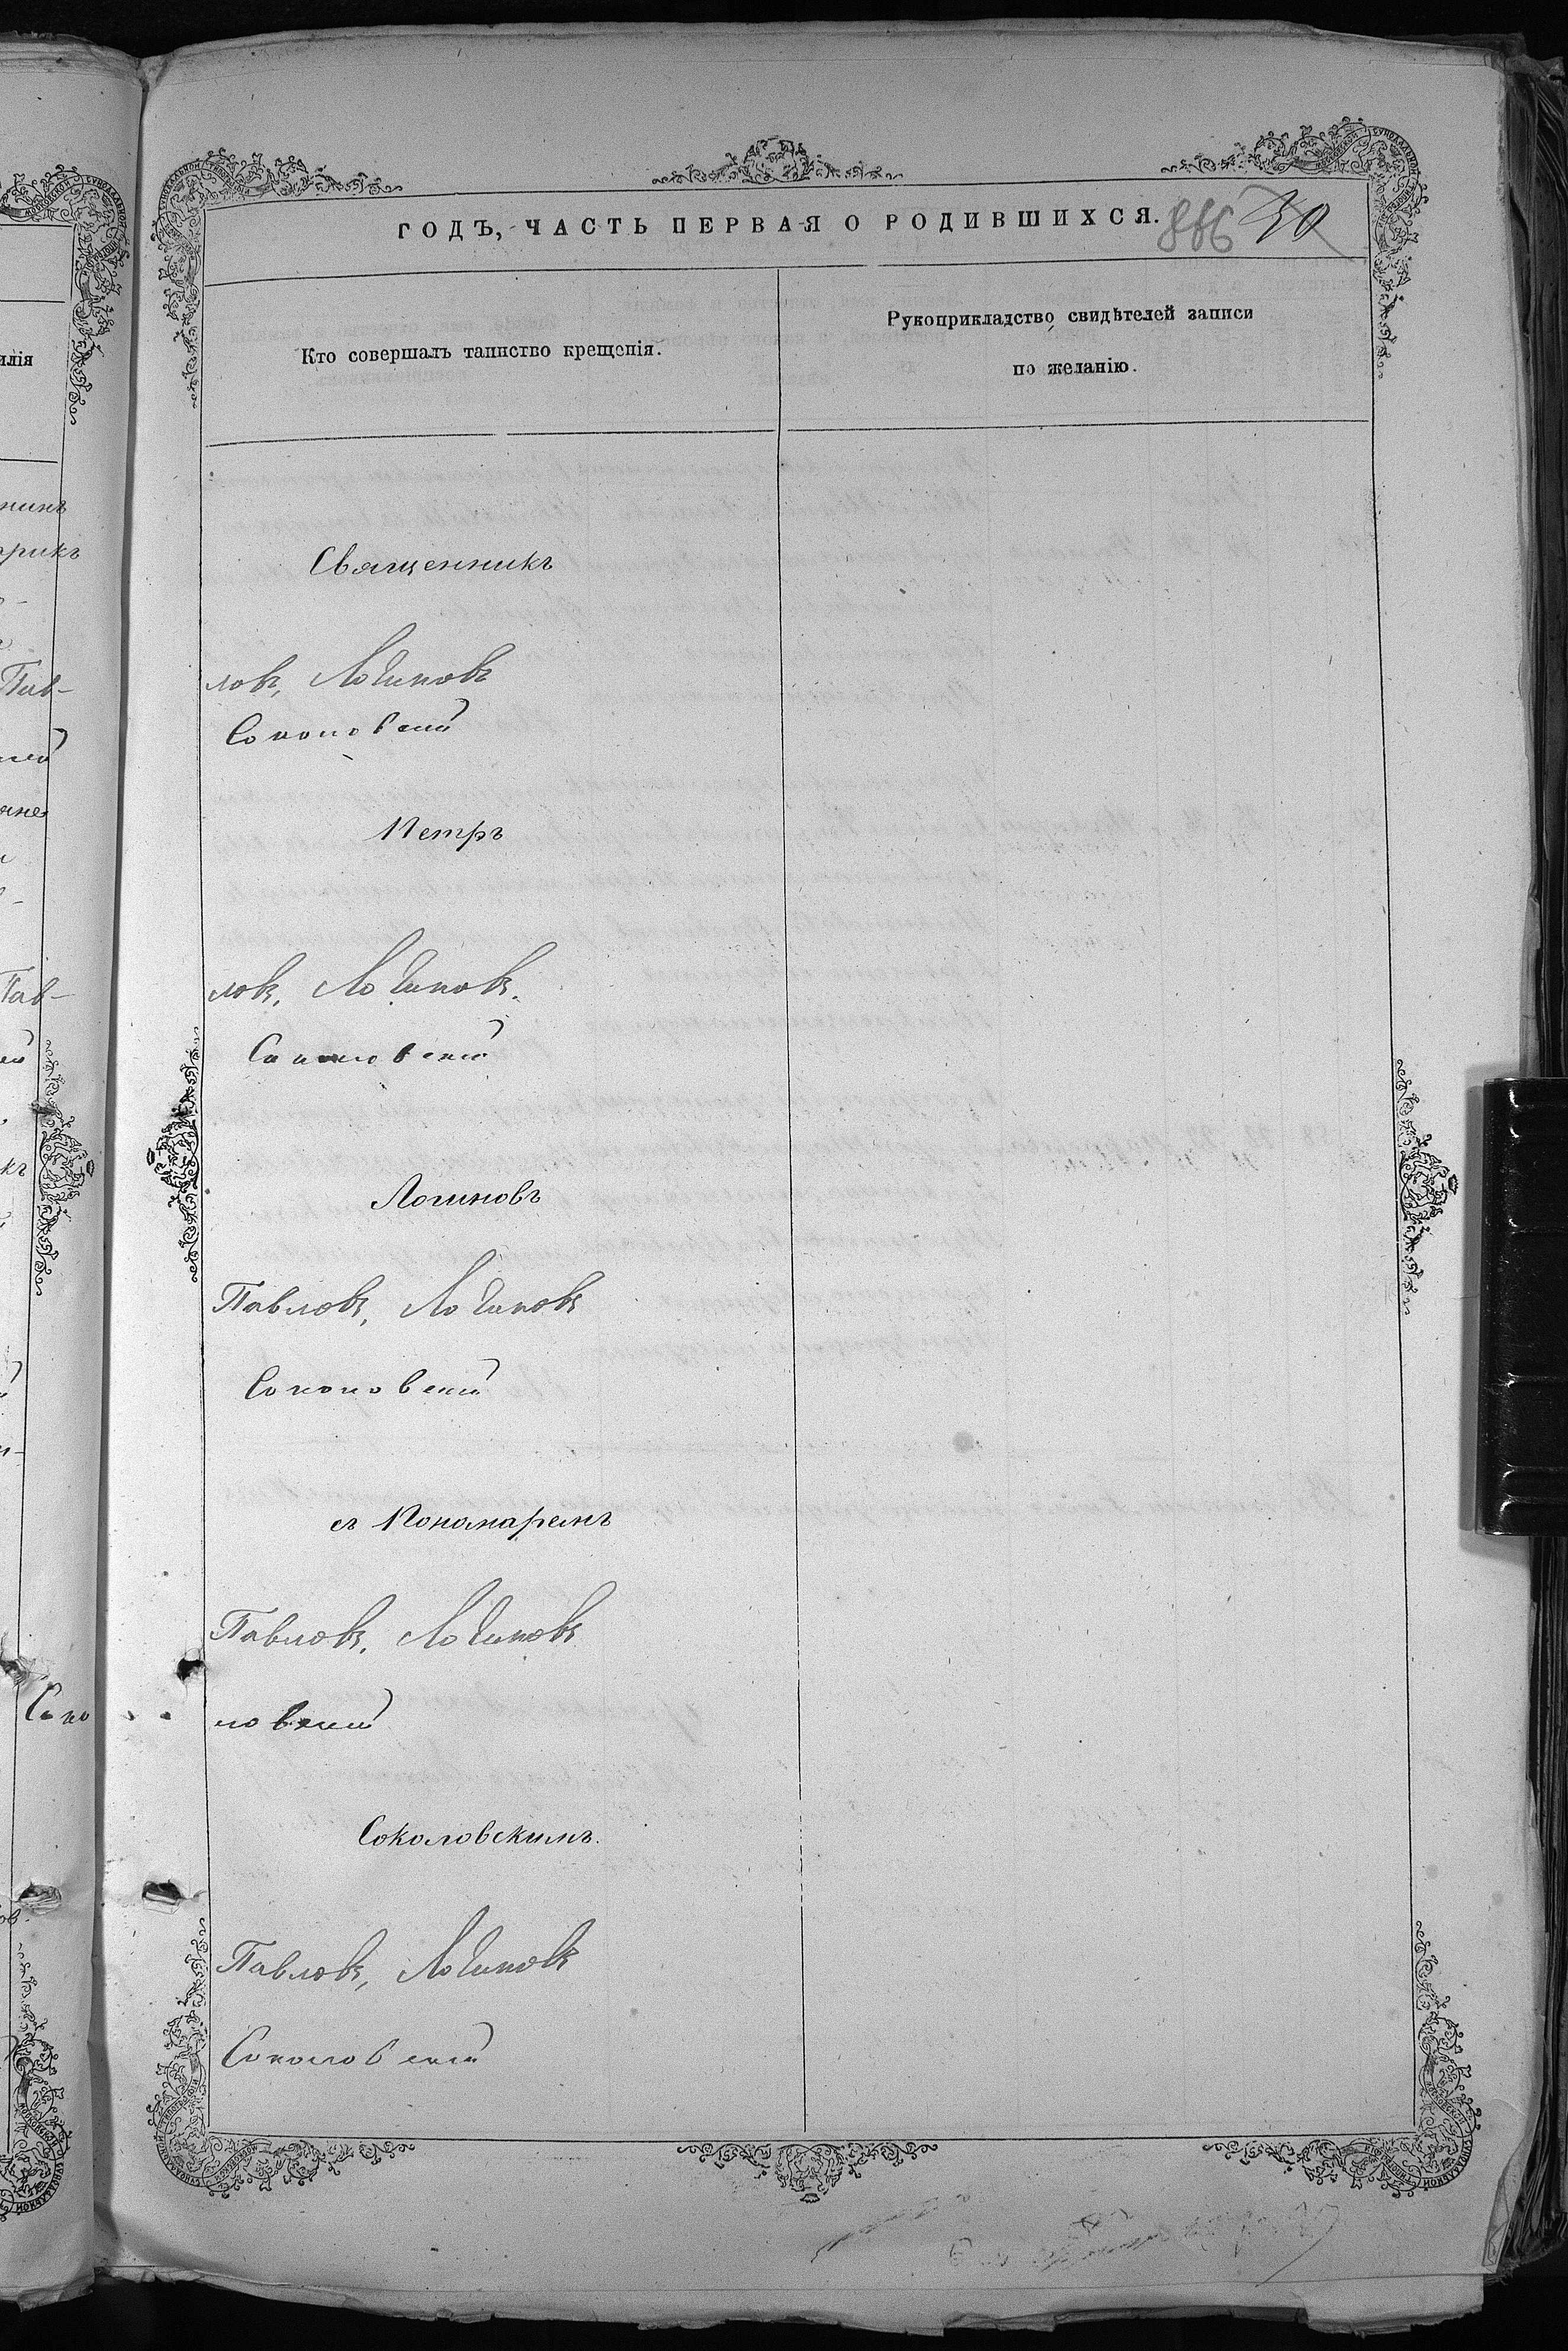 ГОДЪ, ЧАСТЬ ПЕРВАЯ О РОДИВШИХСЯ. 866 30
Кто совершалъ таинство крещенія.
Рукоприкладство свидѣтелей записи
по желанію.
Священникъ
ловъ, Логиновъ
Соколовскій
Петръ
ловъ, Логиновъ.
Соколовскій
Логиновъ
Павловъ, Логиновъ
Соколовскій
съ Пономаремъ
Павловъ, Логиновъ
Соко
ловскій
Соколовскимъ.
Павловъ, Логиновъ
Соколовскій
илія
Пав-
Пав-